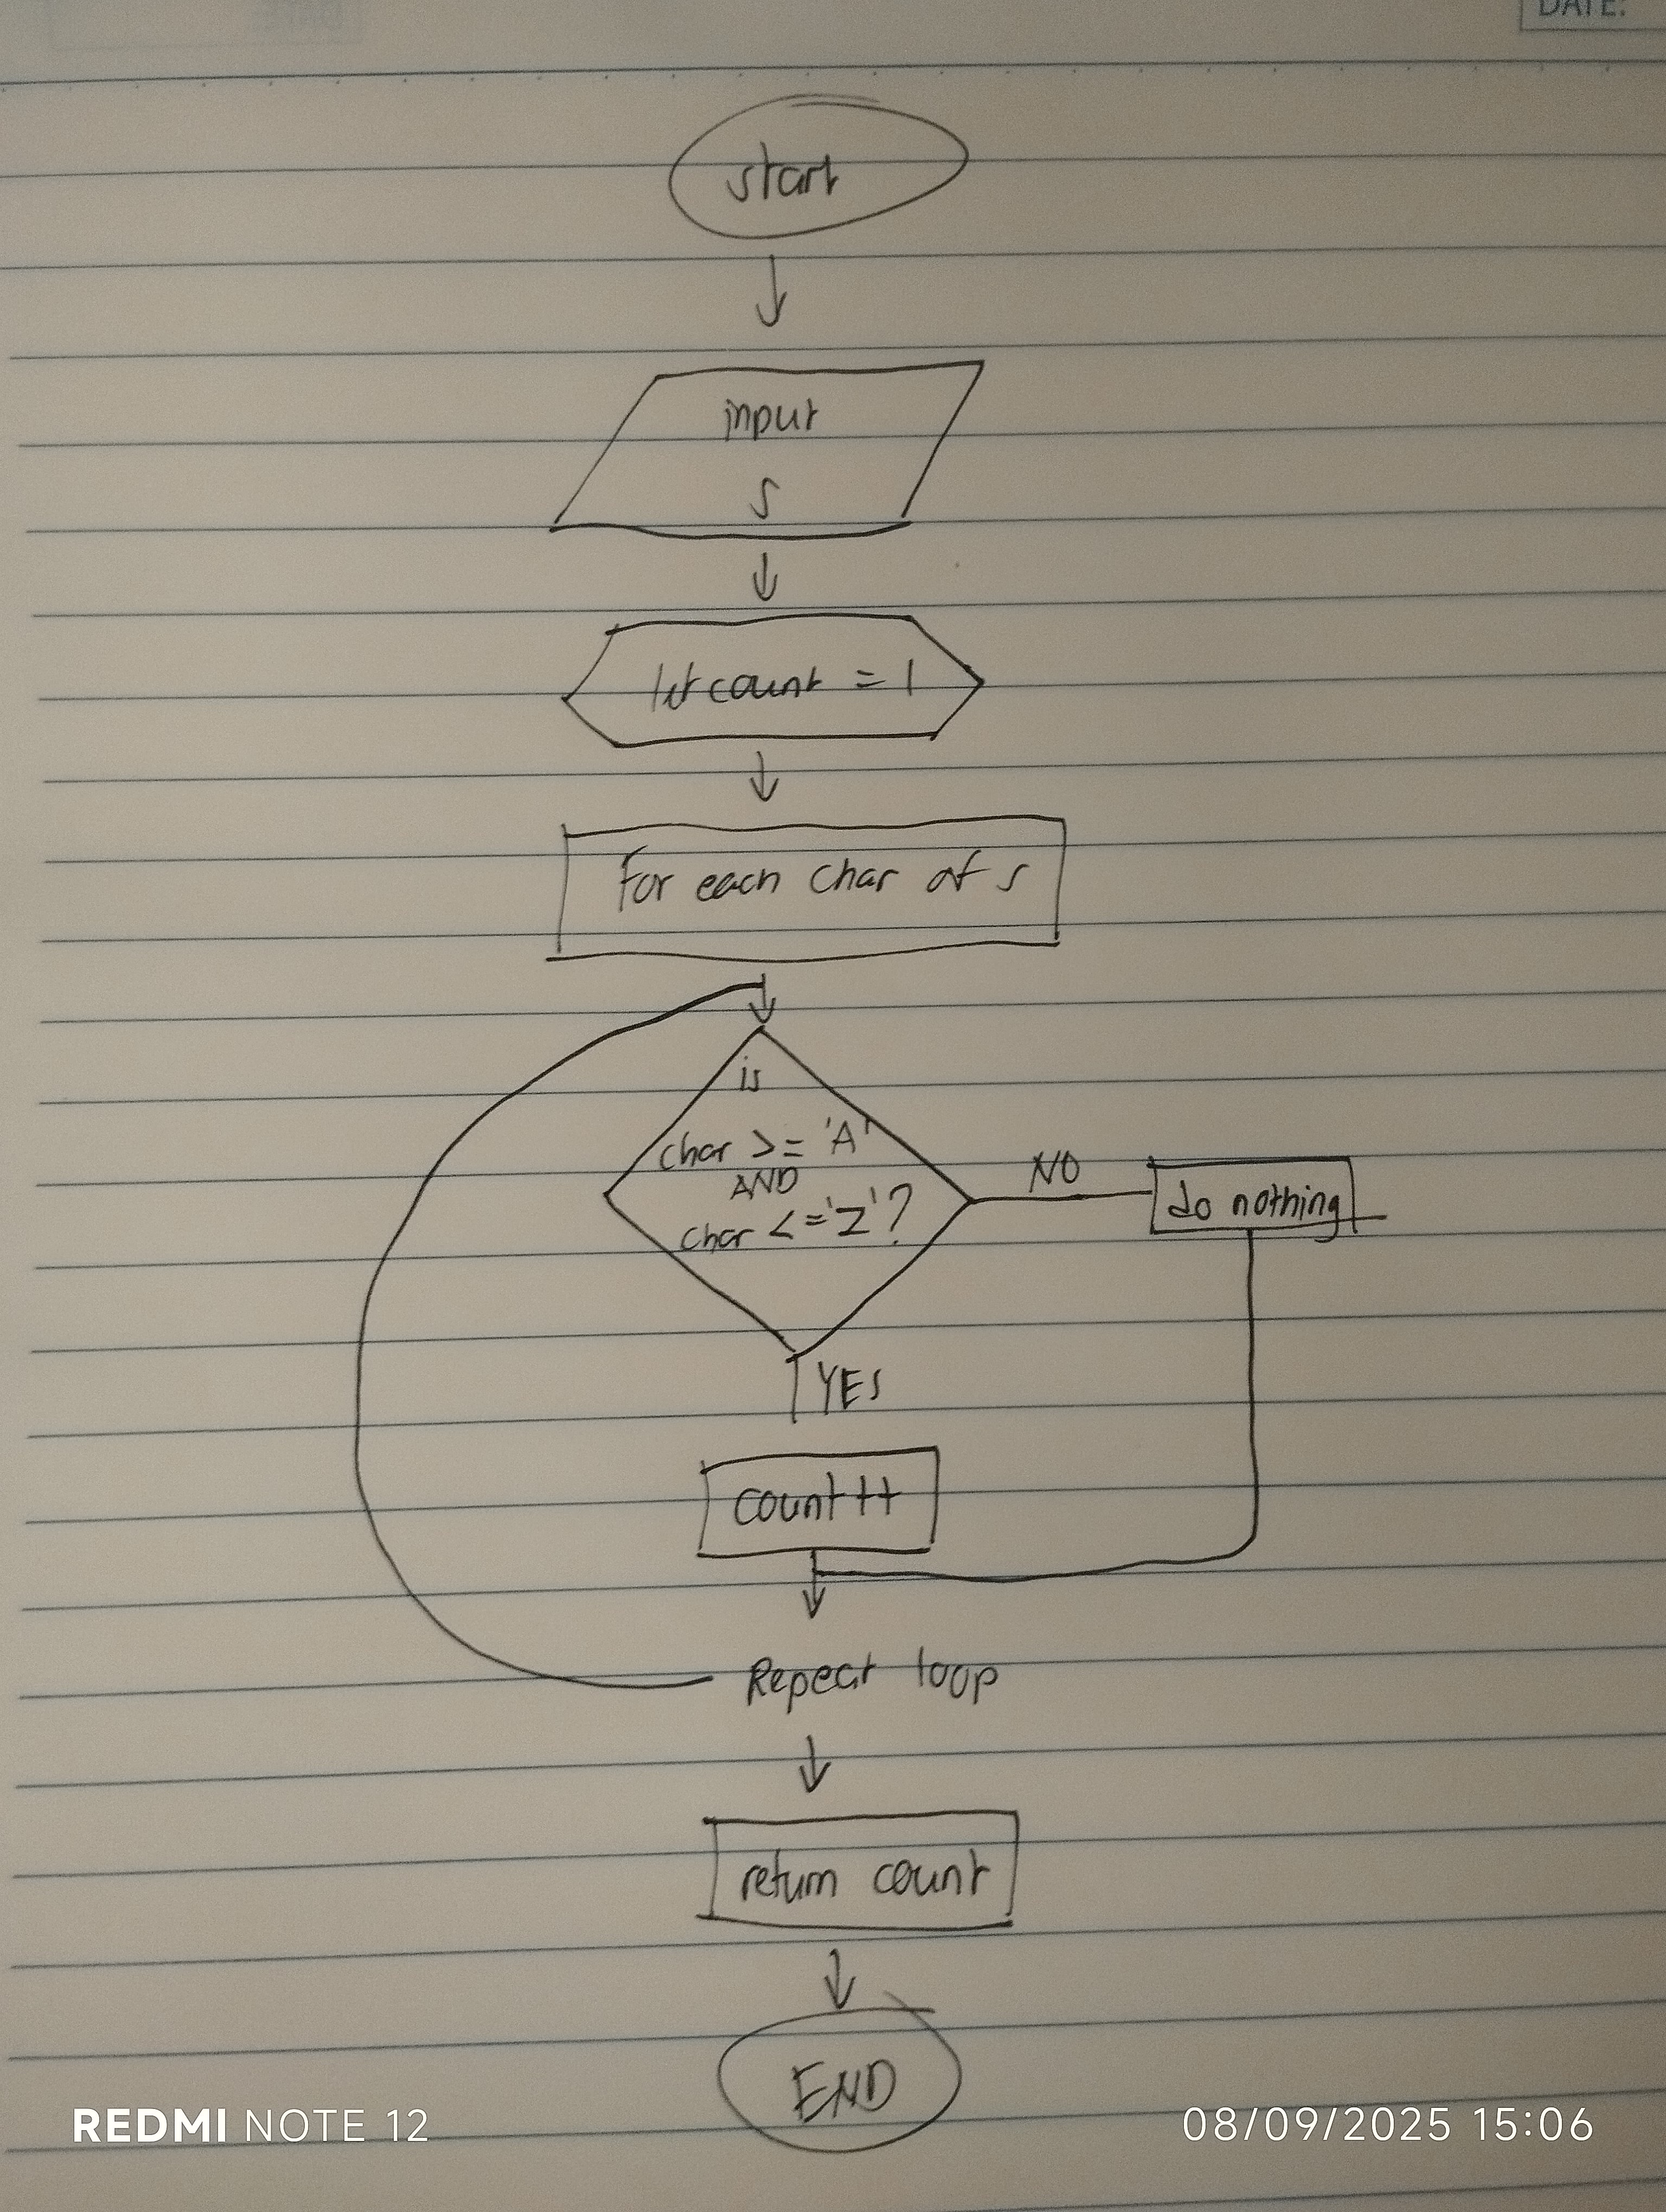 DATE:
start
input
s
let count = 1
for each char of s
is
char >= 'A'
AND
char <= 'Z'?
NO
do nothing
YES
count++
Repeat loop
return count
END
REDMI NOTE 12
08/09/2025 15:06